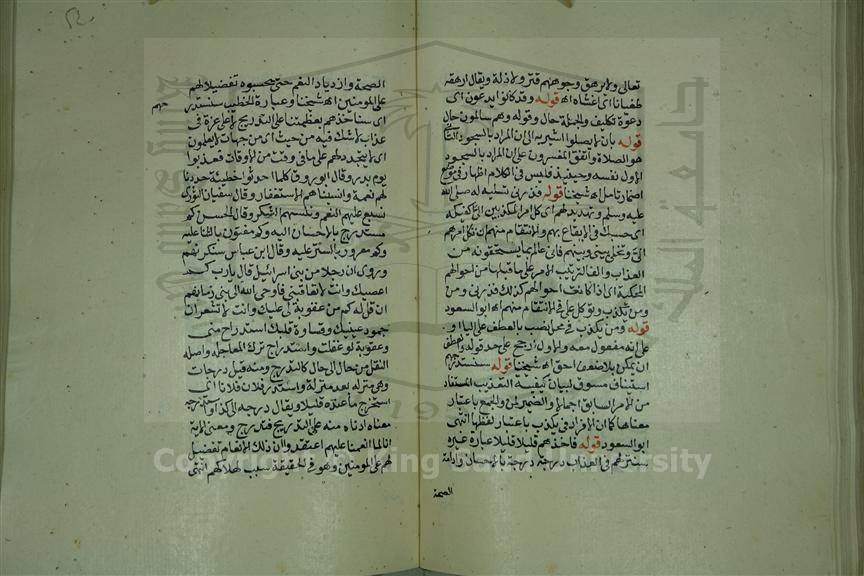 تعالى ولا يرهق وجوههم قتر ولا ذلة ويقال ارهقه
طغيانا اى اغشاه اه قوله وقد كانوا يدعون اى
دعوة تكليف والجملة حال وقوله وهم سالمون حال
قوله بان لا يصلوا اشير به الى ان المراد بالسجود الثانى
هو الصلاة واتفق المفسرون على ان المراد بالسجود
الاول نفسه وحينئذ فليس فى الكلام اظهار فى موضع
اضمار تامل اه شيخنا قوله فذرنى تسلية له صلى الله
عليه وسلم وتهديد لهم اى كل امر المكذبين الى اكفيكه
اى حسبك فى الايقاع بهم والانتقام منهم ان تكل امرهم
الى وتخلى بينى وبينهم فانى عالم بما يستحقونه من
العذاب والفا لترتيب الامر على ما قبلها من احوالهم
المحكية اى اذا كانت احوالهم كذلك فذرنى ومن
ومن يكذب وتوكل على فى الانتقام منهم اه ابو السعود
قوله ومن يكذب فى محل نصب بالعطف على اليا او
على انه مفعول معه والاول ارجح على حد قوله والعطف
ان يمكن بلا ضعف احق اه شيخنا قوله سنستدرجهم
استئناف مسوق لبيان كيفية التعذيب المستفاد
من الامر السابق اجمالا والضمير لمن والجمع باعتبار
معناها كما ان الافراد فى يكذب باعتبار لفظها انتهى
ابو السعود قوله فاخذهم قليلا قليلا عبارة غيره
سننزلهم فى العذاب درجة درجة بالامهال وادامة
الصحة
الصحة وازدياد النعم حتى يحسبوه تفضيلا لهم
على المومنين اه شيخنا وعبارة الخطيب سنستدر
جهم
اى سناخذهم بعظمتنا على التدريج لا على غرة فى
عذاب لا شك فيه من حيث اى من جهات لا يعلمون
اى لا يتجدد لهم علم ما فى وقت من الاوقات فعذبوا
يوم بدر وقال ابو روق كلما احدثوا خطيئة جددنا
لهم نعمة وانسيناهم الاستغفار وقال سفيان الثورى
نسبغ عليهم النعم وننسيهم الشكر وقال الحسن كم
مستدرج بالاحسان اليه وكم مفتون بالثنا عليه
وكم مغرور بالستر عليه وقال ابن عباس سنمكر بهم
وروى ان رجلا من بنى اسرائيل قال يارب كم
اعصيك وانت لا تعاقبنى فاوحى الله الى نبى زمانهم
ان قل له كم من عقوبة لى عليك وانت لا تشعر ان
جمود عينيك وقساوة قلبك استدراج منى
وعقوبة لو عقلت والاستدراج ترك المعاجله واصله
النقل من حال الى حال كالتدرج ومنه قيل درجات
وهى منزله بعد منزلة واستدرج فلان فلانا اى
استخرج ما عنده قليلا ويقال درجه الى كذا واستدرجه
معناه ادناه منه على التدريج فتدرج ومعنى الاية
انا لما انعمنا عليهم اعتقدوا ان ذلك الانعام تفضيل
لهم على المومنين وهو فى الحقيقة سبب لهلاكهم انتهى
Copyright © King Saud University